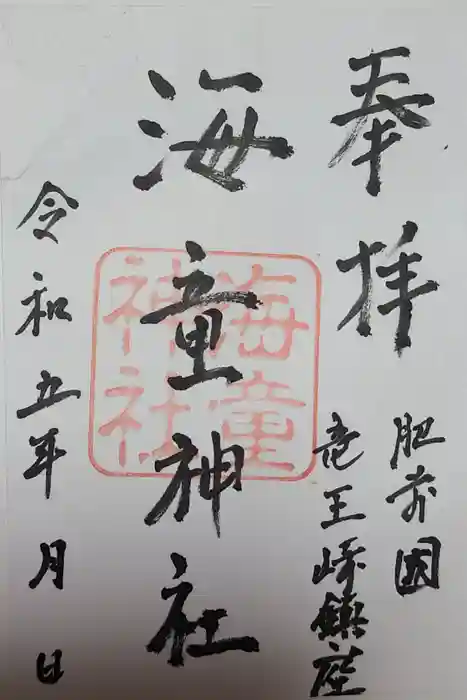 奉拝
肥前国
竜王崎鎮座
海童神社
海童神社
令和五年 月 日